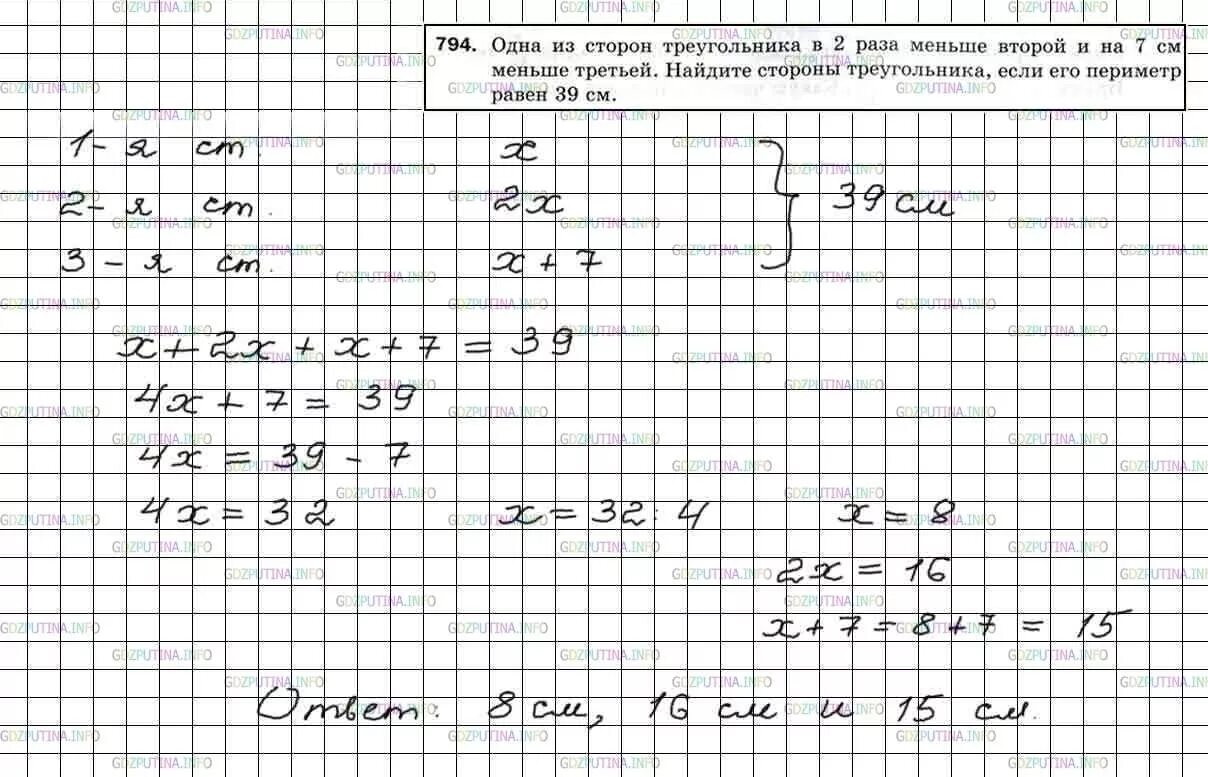 794. Одна из сторон треугольника в 2 раза меньше второй и на 7 см
меньше третьей. Найдите стороны треугольника, если его периметр
равен 39 см.
1-я ст. x
2-я ст. 2x } 39 см
3-я ст. x + 7
x + 2x + x + 7 = 39
4x + 7 = 39
4x = 39 - 7
4x = 32 x = 32 : 4 x = 8
2x = 16
x + 7 = 8 + 7 = 15
Ответ: 8 см, 16 см и 15 см.
GDZPUTINA.INFO